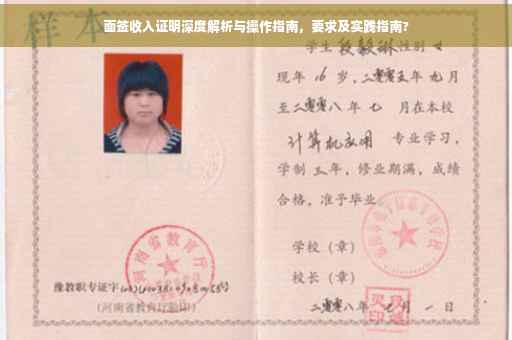 面签收入证明深度解析与操作指南，要求及实践指南?
样本
学生 段毅琳 性别 女
现年 16 岁，二零零五年 九 月
至二零零八年 七 月在本校
计算机应用 专业学习，
学制 三 年，修业期满，成绩
合格，准予毕业
学校（章）
校长（章）
豫教职专证字
(河南省教育厅验印)
二零零八年 七 月 一 日
河南省教育厅